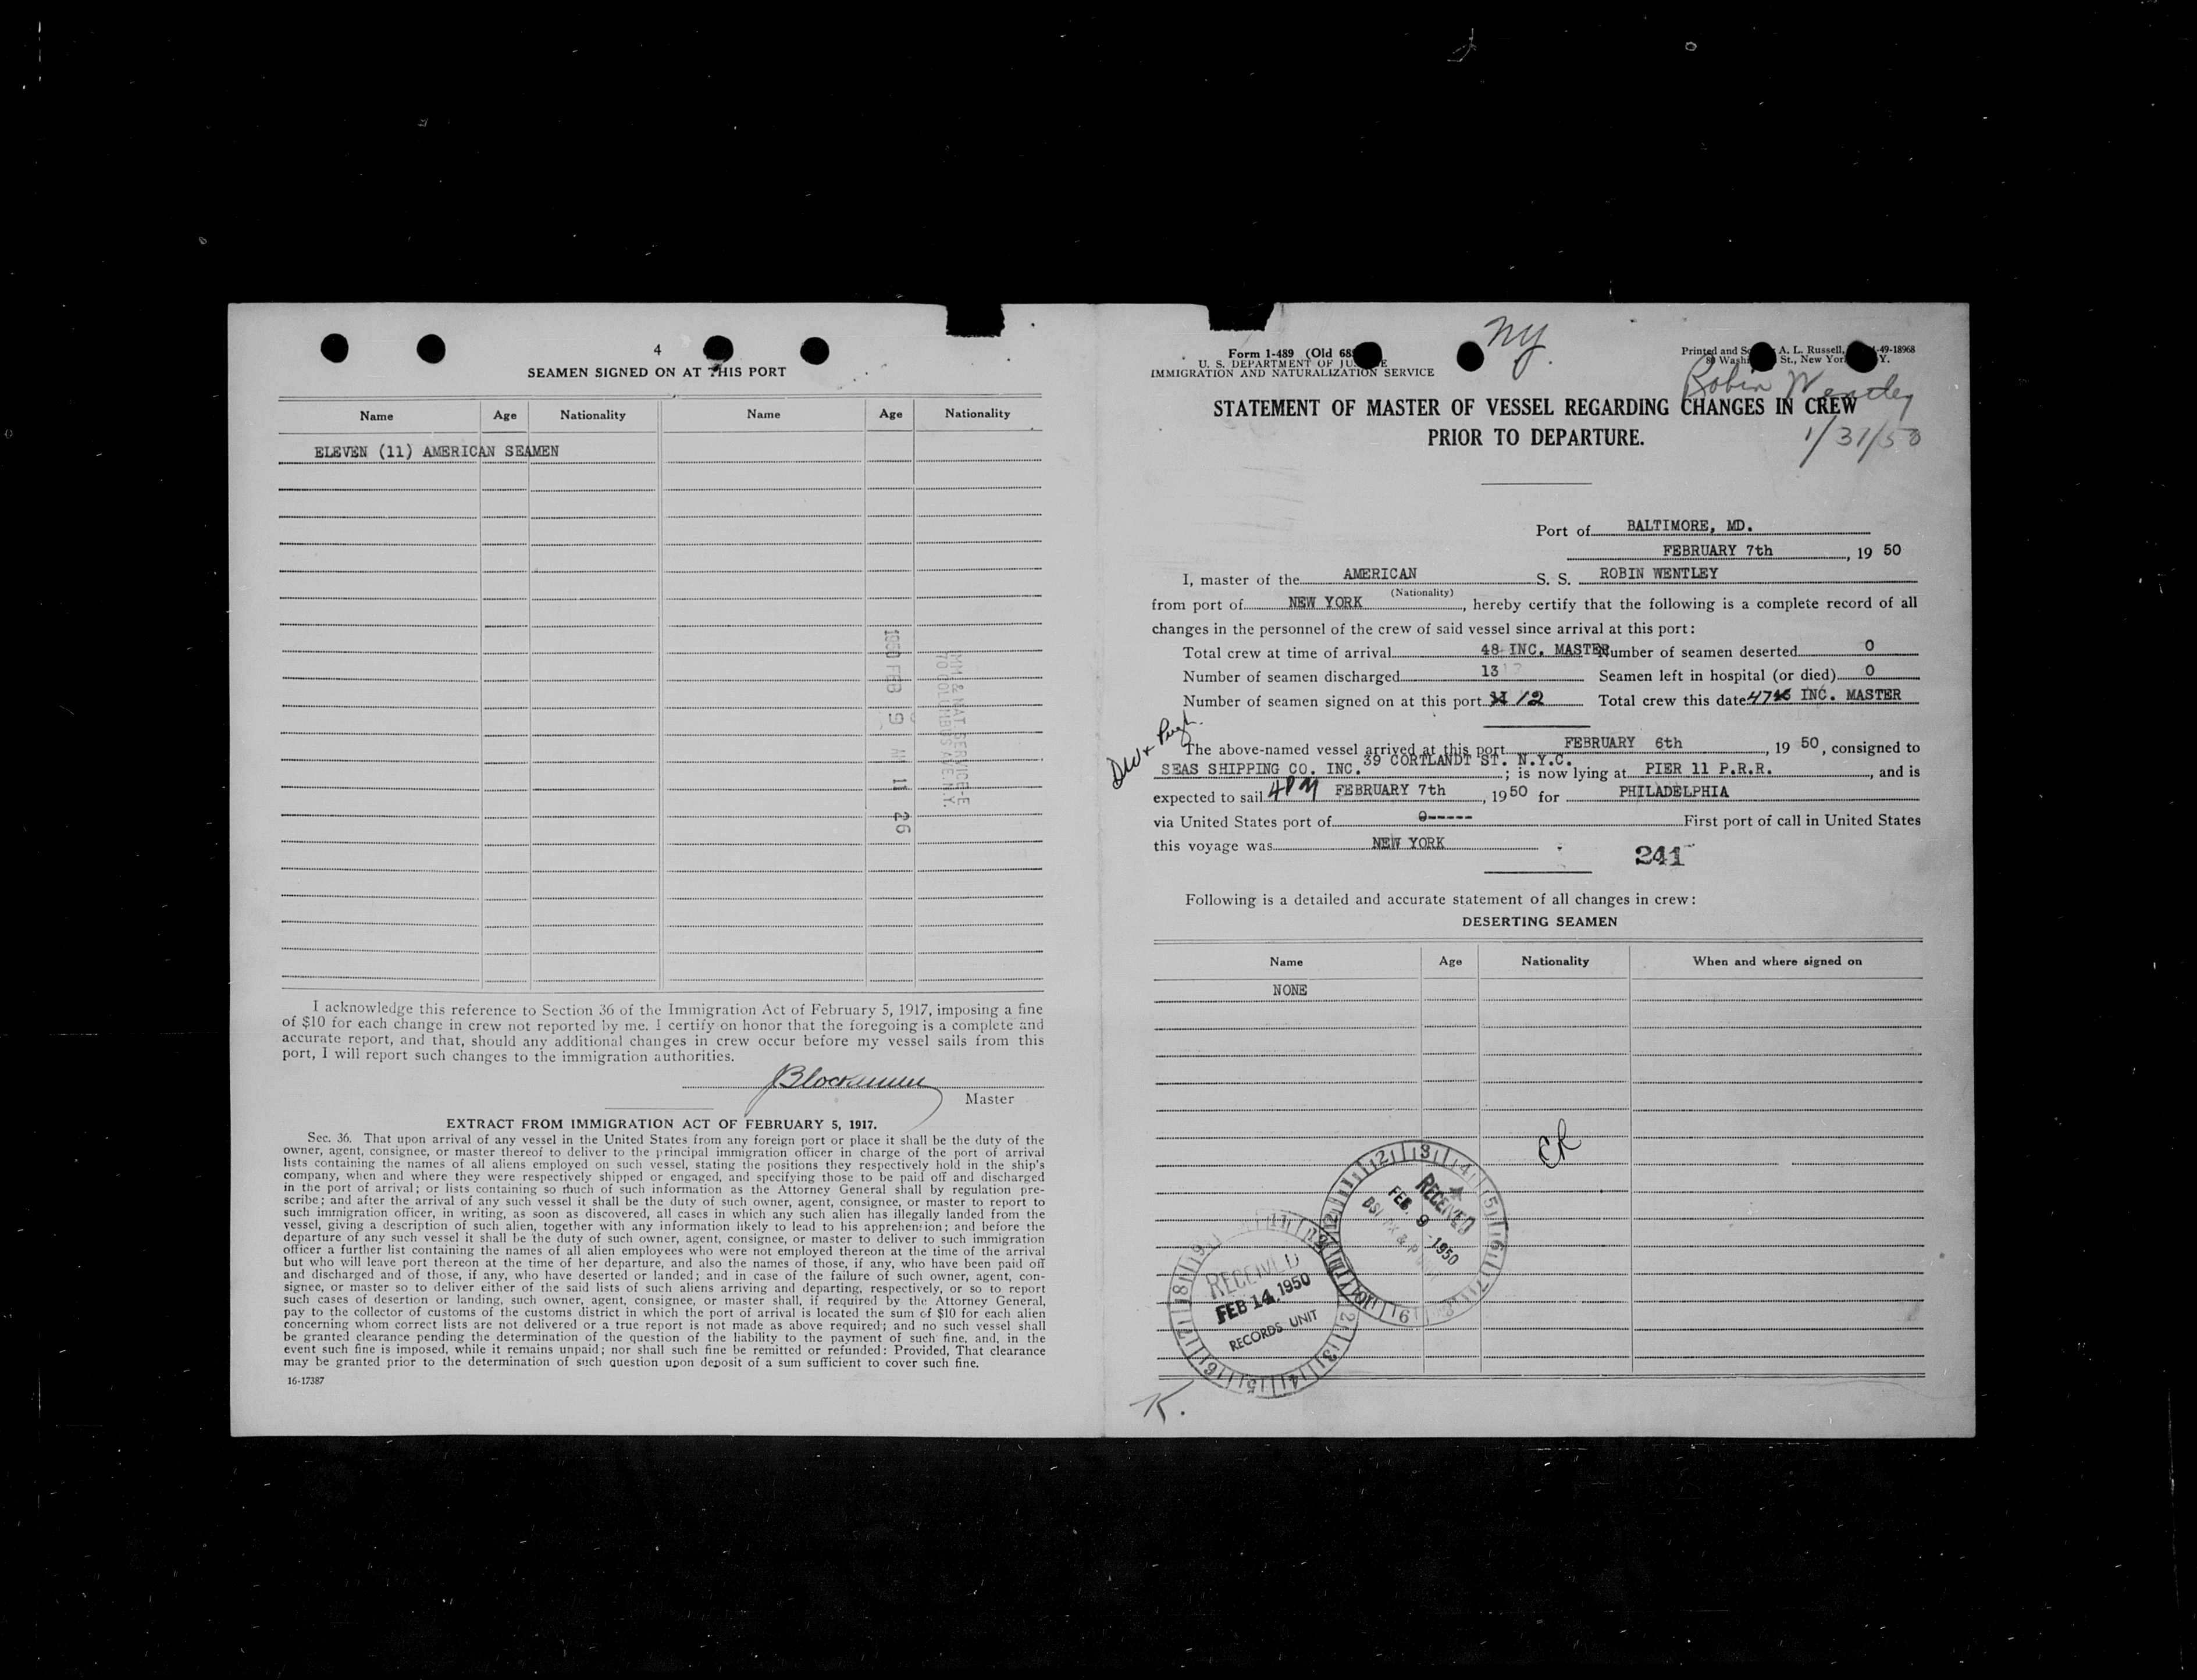 4
SEAMEN SIGNED ON AT THIS PORT
Name Age Nationality Name Age Nationality
ELEVEN (11) AMERICAN SEAMEN
1950 FEB 9 AM 11 26
IMM & NAT. SERVICE-E
70 COLUMBUS AVE. N.Y.
I acknowledge this reference to Section 36 of the Immigration Act of February 5, 1917, imposing a fine
of $10 for each change in crew not reported by me. I certify on honor that the foregoing is a complete and
accurate report, and that, should any additional changes in crew occur before my vessel sails from this
port, I will report such changes to the immigration authorities.
Master
EXTRACT FROM IMMIGRATION ACT OF FEBRUARY 5, 1917.
Sec. 36. That upon arrival of any vessel in the United States from any foreign port or place it shall be the duty of the
owner, agent, consignee, or master thereof to deliver to the principal immigration officer in charge of the port of arrival
lists containing the names of all aliens employed on such vessel, stating the positions they respectively hold in the ship's
company, when and where they were respectively shipped or engaged, and specifying those to be paid off and discharged
in the port of arrival; or lists containing so much of such information as the Attorney General shall by regulation pre-
scribe; and after the arrival of any such vessel it shall be the duty of such owner, agent, consignee, or master to report to
such immigration officer, in writing, as soon as discovered, all cases in which any such alien has illegally landed from the
vessel, giving a description of such alien, together with any information likely to lead to his apprehension; and before the
departure of any such vessel it shall be the duty of such owner, agent, consignee, or master to deliver to such immigration
officer a further list containing the names of all alien employees who were not employed thereon at the time of the arrival
but who will leave port thereon at the time of her departure, and also the names of those, if any, who have been paid off
and discharged and of those, if any, who have deserted or landed; and in case of the failure of such owner, agent, con-
signee, or master so to deliver either of the said lists of such aliens arriving and departing, respectively, or so to report
such cases of desertion or landing, such owner, agent, consignee, or master shall, if required by the Attorney General,
pay to the collector of customs of the customs district in which the port of arrival is located the sum of $10 for each alien
concerning whom correct lists are not delivered or a true report is not made as above required; and no such vessel shall
be granted clearance pending the determination of the question of the liability to the payment of such fine, and, in the
event such fine is imposed, while it remains unpaid; nor shall such fine be remitted or refunded: Provided, That clearance
may be granted prior to the determination of such question upon deposit of a sum sufficient to cover such fine.
16-17387
NY.
Form 1-489 (Old 68
U. S. DEPARTMENT OF JU E
IMMIGRATION AND NATURALIZATION SERVICE
Printed and S A. L. Russell, -49-18968
80 Wash St., New Yor Y.
Robin Wentley
1/31/50
STATEMENT OF MASTER OF VESSEL REGARDING CHANGES IN CREW
PRIOR TO DEPARTURE.
Port of BALTIMORE, MD.
FEBRUARY 7th, 19 50
I, master of the AMERICAN S. S. ROBIN WENTLEY
(Nationality)
from port of NEW YORK, hereby certify that the following is a complete record of all
changes in the personnel of the crew of said vessel since arrival at this port:
Total crew at time of arrival 48 INC. MASTER Number of seamen deserted 0
Number of seamen discharged 13 Seamen left in hospital (or died) 0
Number of seamen signed on at this port 12 Total crew this date 47 INC. MASTER
The above-named vessel arrived at this port FEBRUARY 6th, 19 50, consigned to
SEAS SHIPPING CO. INC. 39 CORTLANDT ST. N.Y.C.; is now lying at PIER 11 P.R.R., and is
expected to sail 4PM FEBRUARY 7th, 19 50 for PHILADELPHIA
via United States port of 0----- First port of call in United States
this voyage was NEW YORK
241
Following is a detailed and accurate statement of all changes in crew:
DESERTING SEAMEN
Name Age Nationality When and where signed on
NONE
RECEIVED
FEB 9 - 1950
RECEIVED
FEB 14, 1950
RECORDS UNIT
K.